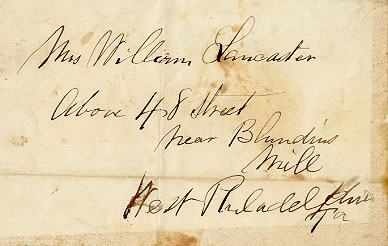 Mrs William Lancaster
Above 48 Street
near Blundins
Mill
West Philadelphia
Pa